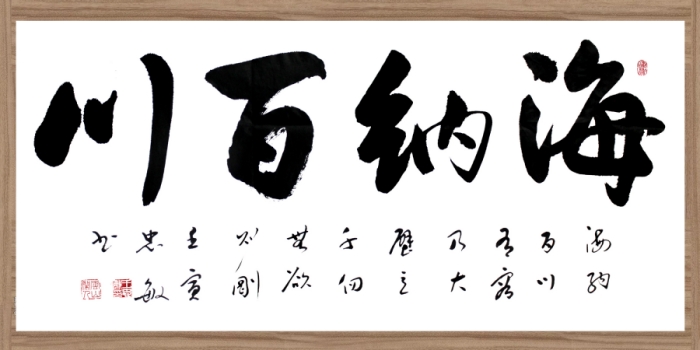 海纳百川
海纳
百川
有容
乃大
壁立
千仞
無欲
则剛
壬寅
忠敏
书